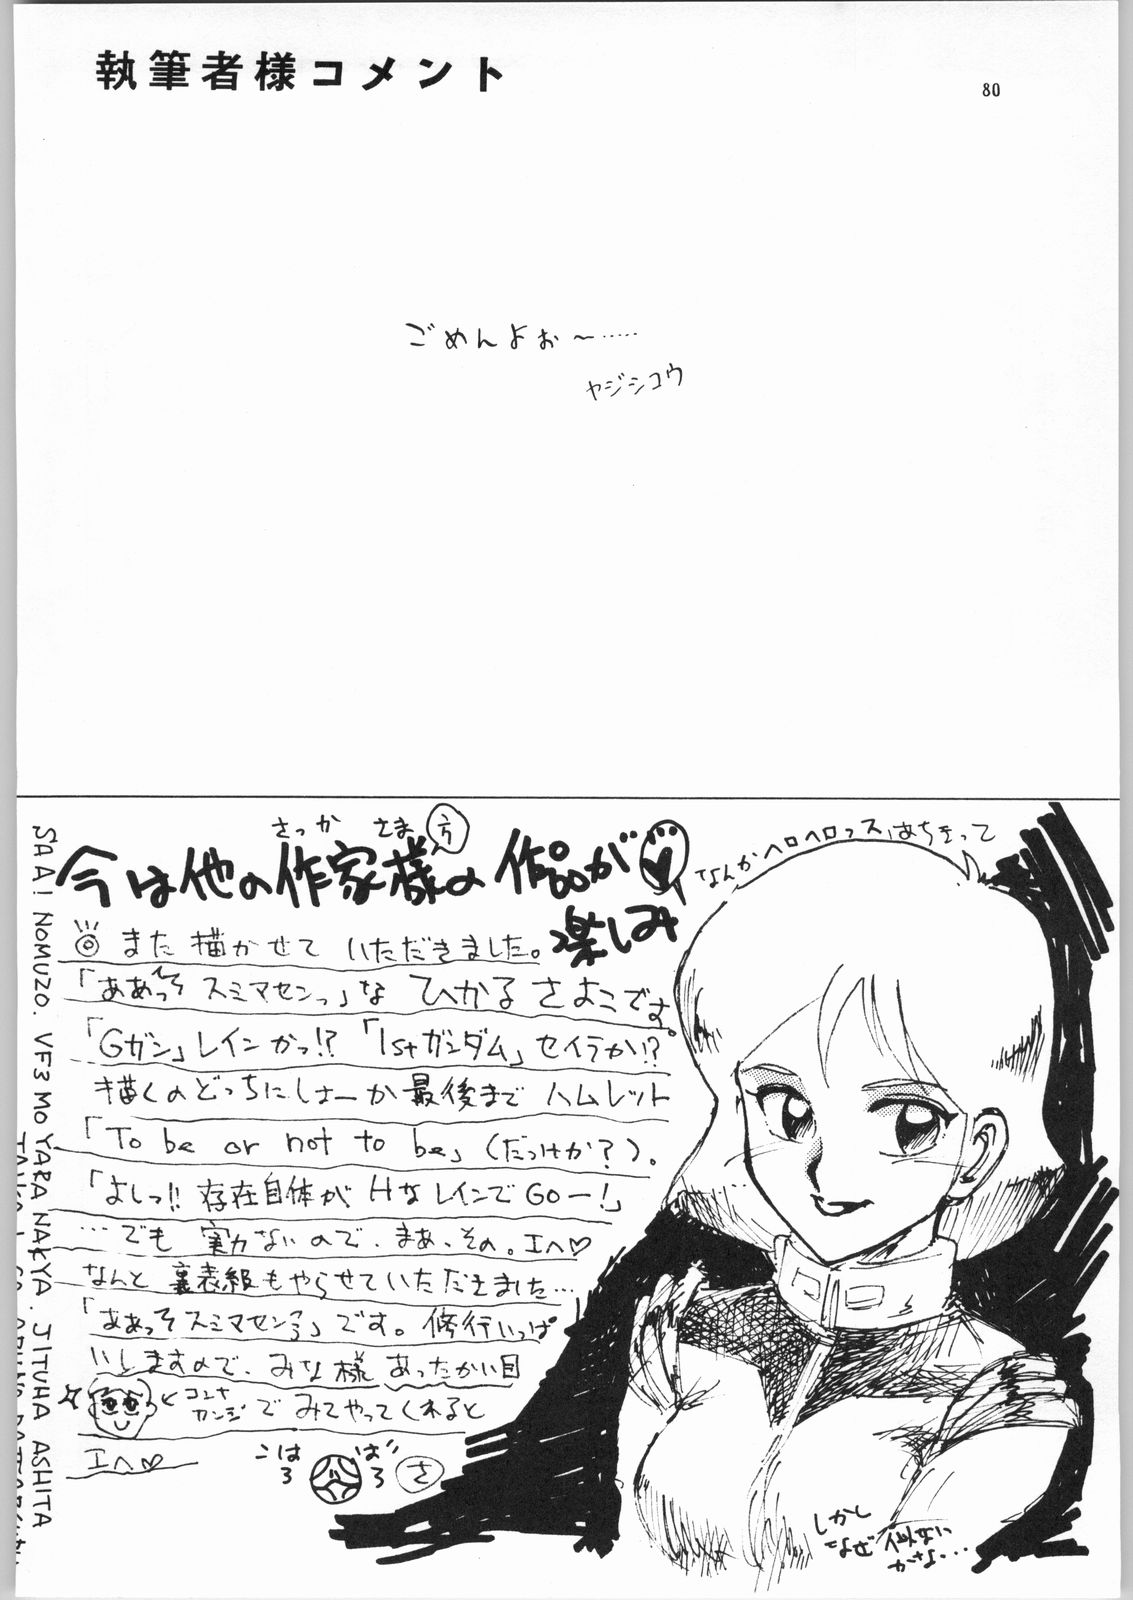 執筆者様コメント
80
ごめんよぉ〜……
ヤジシコウ
さっか さま 方
今は他の作家様の作品が
楽しみ
なんかヘロヘロっス
また描かせていただきました。
「ああっそスミマセンっ」な ひかるさよこです。
「Gガン」レインかっ!?「1stガンダム」セイラか!?
描くのどっちにしよーか最後までハムレット
「To be or not to be」(だっけか?)。
「よしっ!!存在自体がHなレインでGOー!」
…でも実力ないので、まあ、その。エヘ♡
なんと裏表紙もやらせていただきました…
「ああっそスミマセンっ」です。修行いっぱ
いしますので、みな様あったかい目
コンナカンジ
でみてやってくれると
エヘ♡
しかし
なぜ似ない
かな…
SAA! NOMUZO. VF3 MO YARANAKYA. JITUHA ASHITA